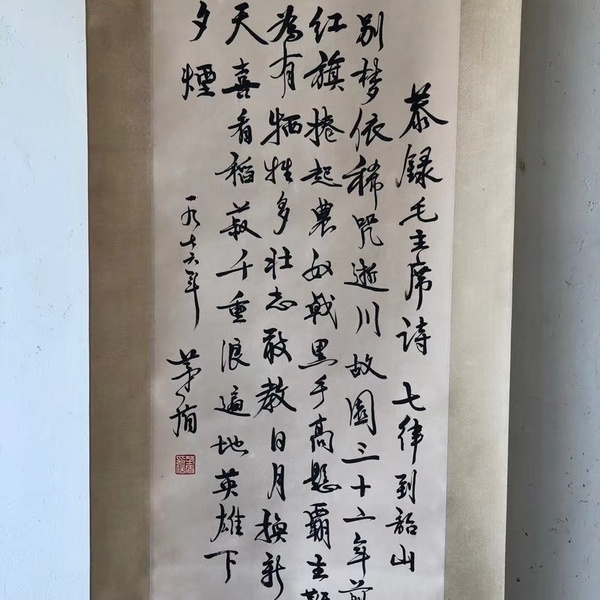 恭録毛主席诗 七律到韶山
别梦依稀咒逝川故園三十二年前
红旗捲起農奴戟黑手高懸霸主鞭
為有牺牲多壮志敢教日月换新
天喜看稻菽千重浪遍地英雄下
夕煙
一九七六年
茅盾